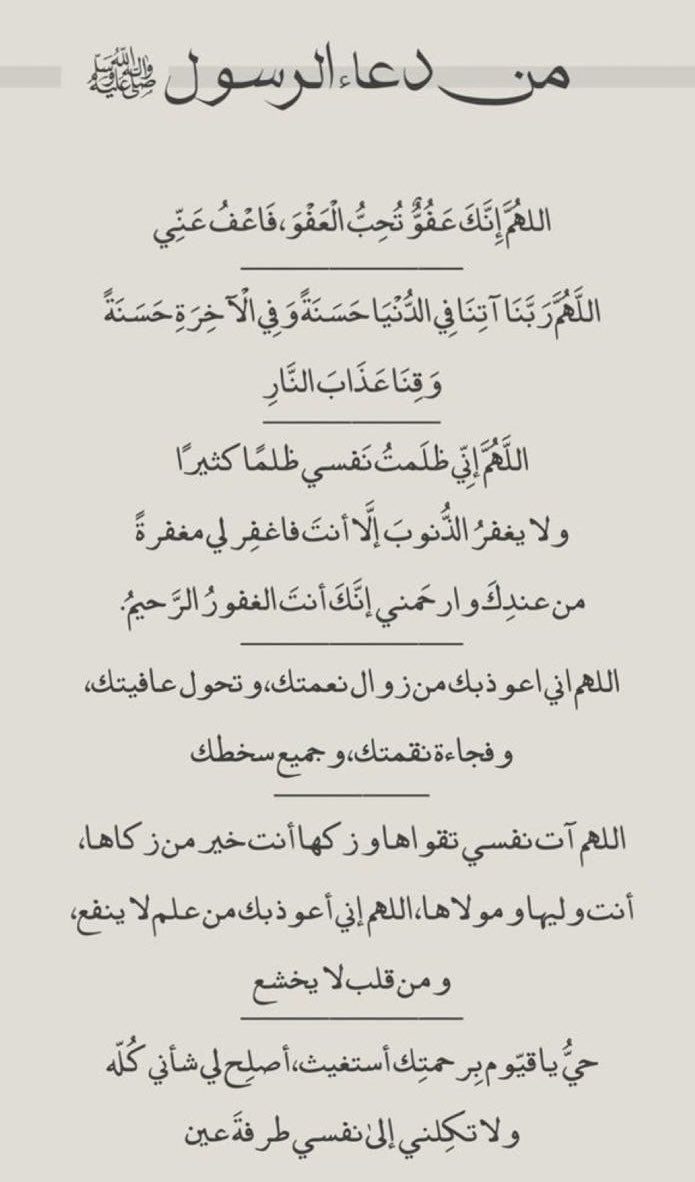 من دعاء الرسول ﷺ
اللهُمَّ إِنَّكَ عَفُوٌّ تُحِبُّ الْعَفْوَ، فَاعْفُ عَنِّي
اللَّهُمَّ رَبَّنَا آتِنَا فِي الدُّنْيَا حَسَنَةً وَفِي الْآخِرَةِ حَسَنَةً
وَقِنَا عَذَابَ النَّارِ
اللَّهُمَّ إنِّي ظلَمتُ نَفسي ظلمًا كثيرًا
ولا يغفرُ الذُّنوبَ إلَّا أنتَ فاغفِر لي مغفرةً
من عندِكَ وارحَمني إنَّكَ أنتَ الغفورُ الرَّحيمُ.
اللهم اني اعوذ بك من زوال نعمتك، وتحول عافيتك،
وفجاءة نقمتك، وجميع سخطك
اللهم آت نفسي تقواها وزكها أنت خير من زكاها،
أنت وليها ومولاها، اللهم إني أعوذ بك من علم لا ينفع،
ومن قلب لا يخشع
حيُّ يا قيّوم بِرحمتِك أستغيث، أصلِح لي شأني كُلّه
ولا تكِلني إلىٰ نفسي طرفةَ عين